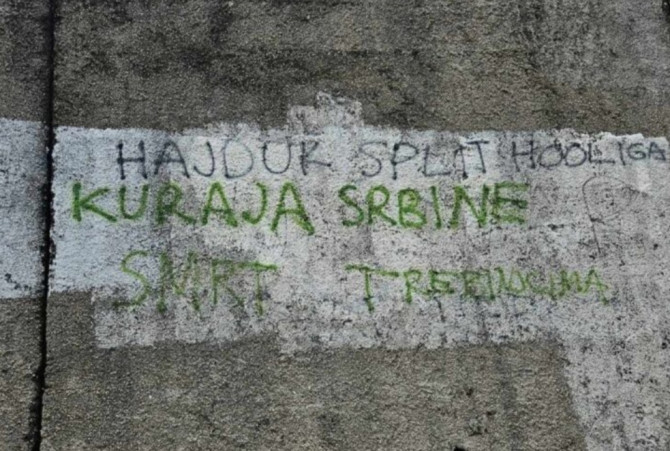 HAJDUK SPLIT HOOLIGA
KURAJA SRBINE
SMRT TREBINJCIMA